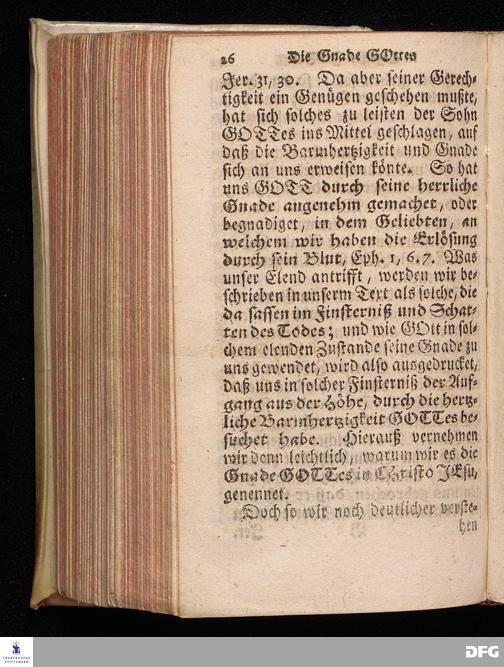 26 Die Gnade GOttes
Jer. 31, 30. Da aber seiner Gerech-
tigkeit ein Genügen geschehen mußte,
hat sich solches zu leisten der Sohn
GOTTes ins Mittel geschlagen, auf
daß die Barmhertzigkeit und Gnade
sich an uns erweisen könte. So hat
uns GOTT durch seine herrliche
Gnade angenehm gemachet, oder
begnadiget, in dem Geliebten, an
welchem wir haben die Erlösung
durch sein Blut, Eph. 1, 6. 7. Was
unser Elend antrifft, werden wir be-
schrieben in unserm Text als solche, die
da sassen im Finsterniß und Schat-
ten des Todes; und wie GOtt in sol-
chem elenden Zustande seine Gnade zu
uns gewendet, wird also ausgedrucket,
daß uns in solcher Finsterniß der Auf-
gang aus der Höhe, durch die hertz-
liche Barmhertzigkeit GOTTes be-
suchet habe. Hierauß vernehmen
wir denn leichtlich, warum wir es die
Gnade GOTTes in CHristo JEsu,
genennet.
Doch so wir noch deutlicher verste-
hen
FRANCKESCHE
STIFTUNGEN
DFG